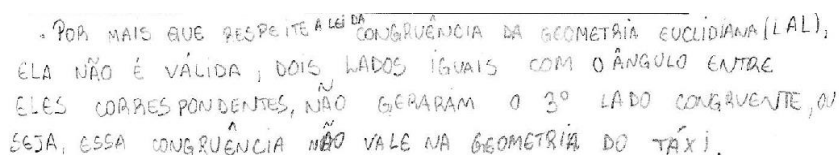 . POR MAIS QUE RESPEITE A LEI DA CONGRUÊNCIA DA GEOMETRIA EUCLIDIANA (LAL),
ELA NÃO É VÁLIDA, DOIS LADOS IGUAIS COM O ÂNGULO ENTRE
ELES CORRESPONDENTES, NÃO GERARAM O 3º LADO CONGRUENTE, OU
SEJA, ESSA CONGRUÊNCIA NÃO VALE NA GEOMETRIA DO TÁXI.